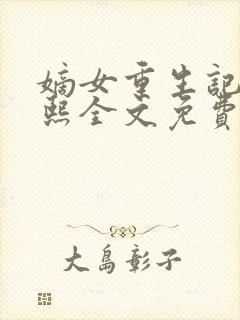 嫡女重生記
熙全文免費
大島彰子